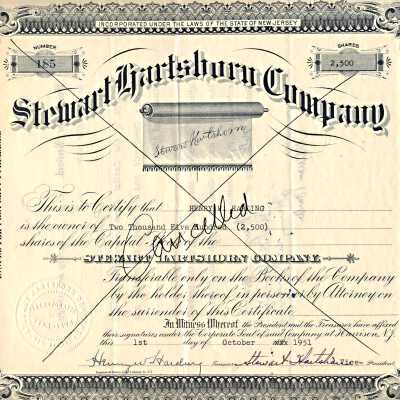 INCORPORATED UNDER THE LAWS OF THE STATE OF NEW JERSEY
NUMBER
185
SHARES
2,500
Stewart Hartshorn Company
Stewart Hartshorn
This is to Certify that HENRY W. HARDING
is the owner of Two Thousand Five Hundred (2,500)
shares of the Capital of the
Cancelled
STEWART HARTSHORN COMPANY.
Transferable only on the Books of the Company
by the holder thereof in person or by Attorney on
the surrender of this Certificate
In Witness Whereof the President and the Treasurer have affixed
their signatures under the Corporate Seal of said Company at Harrison, N.J.
this 1st day of October 1951
Henry W. Harding Treasurer Stewart Hartshorn President